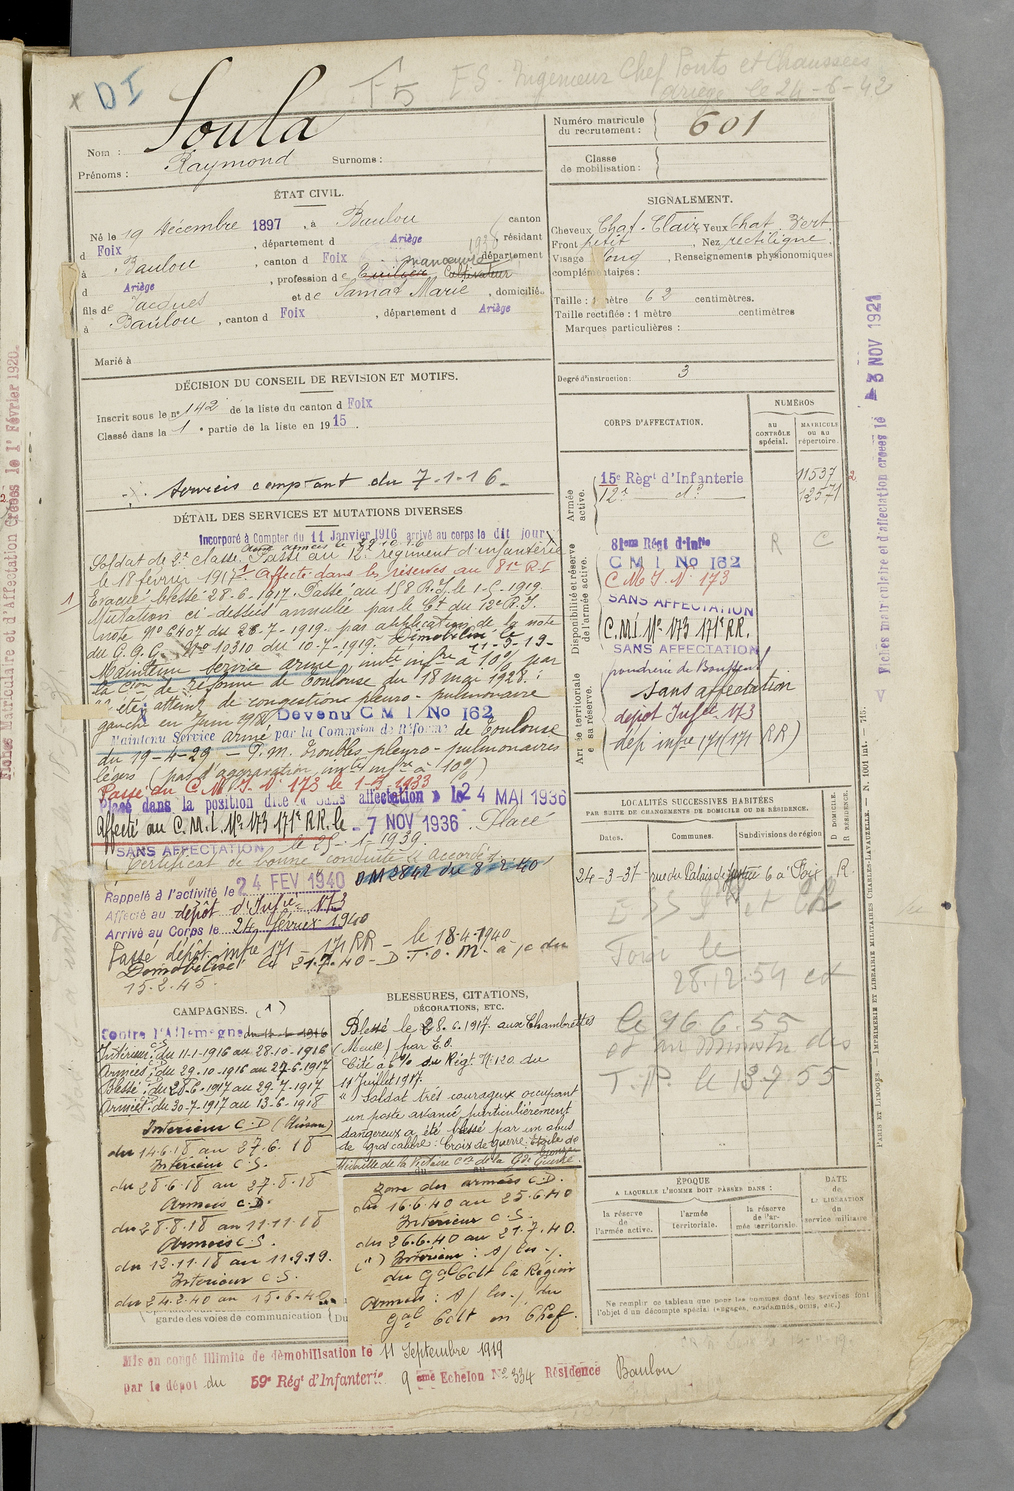 DI
F5
ES. Ingénieur Chef Ponts et Chaussées
Ariège le 24-6-42
Nom : Soula
Prénoms : Raymond Surnoms :
Numéro matricule
du recrutement : 601
Classe
de mobilisation :
ÉTAT CIVIL.
Né le 19 Décembre 1897, à Baulou canton
d Foix, département d Ariège, résidant
à Baulou, canton d Foix département
d Ariège, profession de Cultivateur
fils de Jacques et de Samat Marie, domiciliés
à Baulou, canton d Foix, département d Ariège
Marié à
SIGNALEMENT.
Cheveux Chat. Clair Yeux Chat. Vert
Front petit, Nez rectiligne.
Visage long, Renseignements physionomiques
complémentaires :
Taille : 1 mètre 62 centimètres.
Taille rectifiée : 1 mètre centimètres
Marques particulières :
Degré d'instruction : 3
DÉCISION DU CONSEIL DE REVISION ET MOTIFS.
Inscrit sous le n° 142 de la liste du canton d Foix
Classé dans la 1e partie de la liste en 1915.
Services comptant du 7-1-16.
DÉTAIL DES SERVICES ET MUTATIONS DIVERSES
Incorporé à Compter du 11 Janvier 1916 arrivé au corps le dit jour
Soldat de 2e classe. Passé au 12e régiment d'infanterie
le 18 février 1917. Affecté dans les réserves au 81e R.I
Évacué blessé 28-6-1917. Passé au 158 R.I. le 1-5-1919
Mutation ci-dessus annulée par le Ct du 12e R.I.
(note No 6407 du 28-7-1919. par application de la note
du G.Q.G. No 10310 du 10-7-1919. Démobilisé le 11-9-19-
Maintenu service armé, invté infre à 10% par
la Cion de réforme de Toulouse du 18 mai 1928 :
a été atteint de congestion pleuro-pulmonaire
gauche en Juin 1918 Devenu C M I No 162
Maintenu Service armé par la Commsion de Réforme de Toulouse
du 19-4-29 — P.m. troubles pleuro-pulmonaires
légers (pas d'aggravation invté infre à 10%)
Passé au C.M.I. No 173 le 1-5-1933
Placé dans la position dite « Sans affectation » le 24 MAI 1936
Affecté au C.M.I. No 173 171e R.R. le - 7 NOV 1936. Placé
SANS AFFECTATION le 25-1-1939.
Certificat de bonne conduite « Accordé »
Rappelé à l'activité le 24 FEV 1940 DM 2842 du 8-2-40
Affecté au dépôt d'Infie No 173
Arrivé au Corps le 24 février 1940
Passé dépôt infre 171 — 171 RR — le 18-4-1940
Démobilisé le 21.7.40 — D.T.O.M. à /c du
15.2.45.
CORPS D'AFFECTATION.
NUMÉROS
AU CONTRÔLE spécial.
MATRICULE OU AU répertoire.
Armée active.
15e Régt d'Infanterie 11537
12e do 12571
Disponibilité et réserve de l'armée active.
81eme Régt d'Infie R C
C M I No 162
C. M. I. No 173
SANS AFFECTATION
C.M.I. No 173 171e RR.
SANS AFFECTATION
Armée territoriale et sa réserve.
poudrerie de Boussens
Sans affectation
dépôt Infie 173
dép infre 171 (171 RR)
LOCALITÉS SUCCESSIVES HABITÉES
PAR SUITE DE CHANGEMENTS DE DOMICILE OU DE RÉSIDENCE.
Dates. Communes. Subdivisions de région D DOMICILE. R RÉSIDENCE.
24-3-37 rue du Palais de Justice 6 à Foix R.
Foix le
28.12.54 et
le 16.6.55
et au Ministre des
T.P. le 13-7-55
CAMPAGNES. (1)
Contre l'Allemagne
Intérieur C.S. du 11-1-1916 au 28-10-1916
Armées C.D. du 29-10-1916 au 27-6-1917
Blessé : du 28-6-1917 au 29-7-1917
Armées : du 30-7-1917 au 13-6-1918
Intérieur C.D.
du 14.6.18 au 27.6.18
Intérieur C.S.
du 28.6.18 au 27.8.18
Armées C.D.
du 28.8.18 au 11.11.18
Armées C.S.
du 12.11.18 au 11.9.19.
Intérieur C.S.
du 24.2.40 au 15.6.40
garde des voies de communication
BLESSURES, CITATIONS,
DÉCORATIONS, ETC.
Blessé le 28.6.1917. aux Chambrettes
(Meuse) par E.O.
Cité à l'o/ du Régt. No 120 du
11 Juillet 1917.
" Soldat très courageux occupant
un poste avancé particulièrement
dangereux a été blessé par un obus
de gros calibre. Croix de guerre. Étoile de bronze
Médaille de la Victoire
Zone des armées C.D.
du 16.6.40 au 25.6.40
Intérieur C.S.
du 26.6.40 au 21.7.40.
(") Intérieur : s/ les /.
du Gal Cdt la Région
Armées : s/ les /. du
Gal Cdt en Chef.
ÉPOQUE
A LAQUELLE L'HOMME DOIT PASSER DANS :
la réserve de l'armée active.
l'armée territoriale.
la réserve de l'armée territoriale.
DATE de LA LIBÉRATION du service militaire
Ne remplir ce tableau que pour les hommes dont les services font
l'objet d'un décompte spécial (engagés, condamnés, omis, etc.)
Mis en congé illimité de démobilisation le 11 Septembre 1919
par le dépôt du 59e Régt d'Infanterie 9 ème Echelon No 334 Résidence Baulou
Fiches matriculaire et d'affectation créées le - 3 NOV 1921
PARIS ET LIMOGES. — IMPRIMERIE ET LIBRAIRIE MILITAIRES CHARLES-LAVAUZELLE. — N. 1001 int. — 715.
Fiches Matriculaire et d'Affectation Créées le 1r Février 1920.